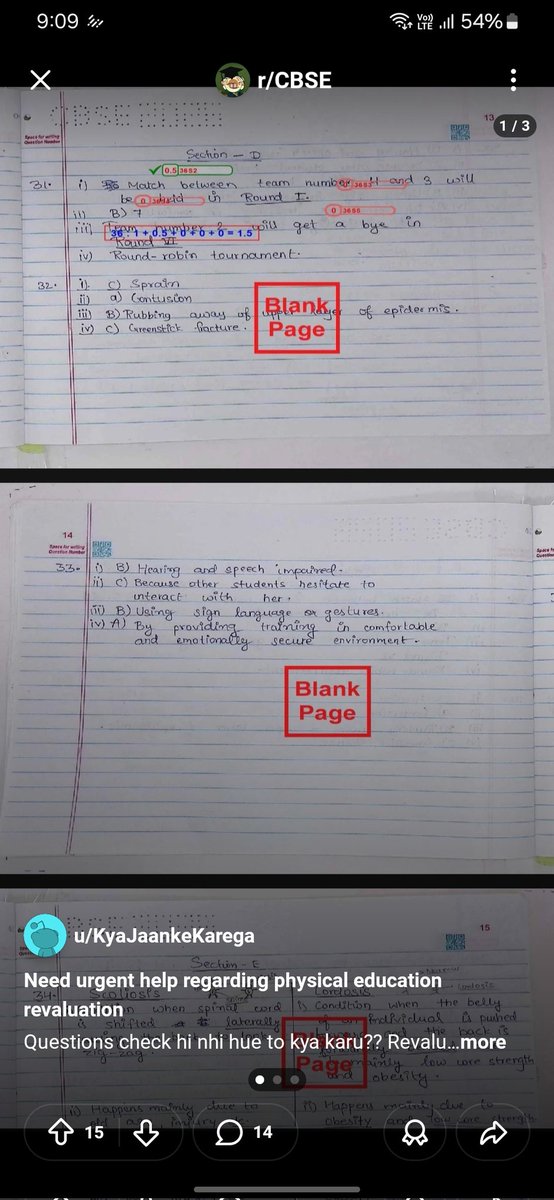 9:09
Vo))
LTE
54%
r/CBSE
CBSE
13
1 / 3
Space for writing
Question Number
Section - D
0.5 3652
31. i) Match between team number 1 and 3 will
be held in Round I.
0
3653
0
3655
ii) B) 7
iii) Team number will get a bye in
36 : 1 + 0.5 + 0 + 0 + 0 = 1.5
Round VI
iv) Round-robin tournament.
32. i) C) Sprain
ii) a) Contusion
iii) B) Rubbing away of upper layer of epidermis.
iv) C) Greenstick fracture.
Blank
Page
14
Space for writing
Question Number
33. i) B) Hearing and speech impaired.
ii) C) Because other students hesitate to
interact with her.
iii) B) Using sign language or gestures.
iv) A) By providing training in comfortable
and emotionally secure environment.
Blank
Page
15
u/KyaJaankeKarega
Section - E
Need urgent help regarding physical education
revaluation
34. Scoliosis
Lordosis
when spinal cord
i) Condition when the belly
is shifted laterally
individual is pushed
the back is
Questions check hi nhi hue to kya karu?? Revalu...more
zig-zag.
mainly low core strength
and obesity.
Page
ii) Happens mainly due to
ii) Happens mainly due to
obesity and low core strength
15
14